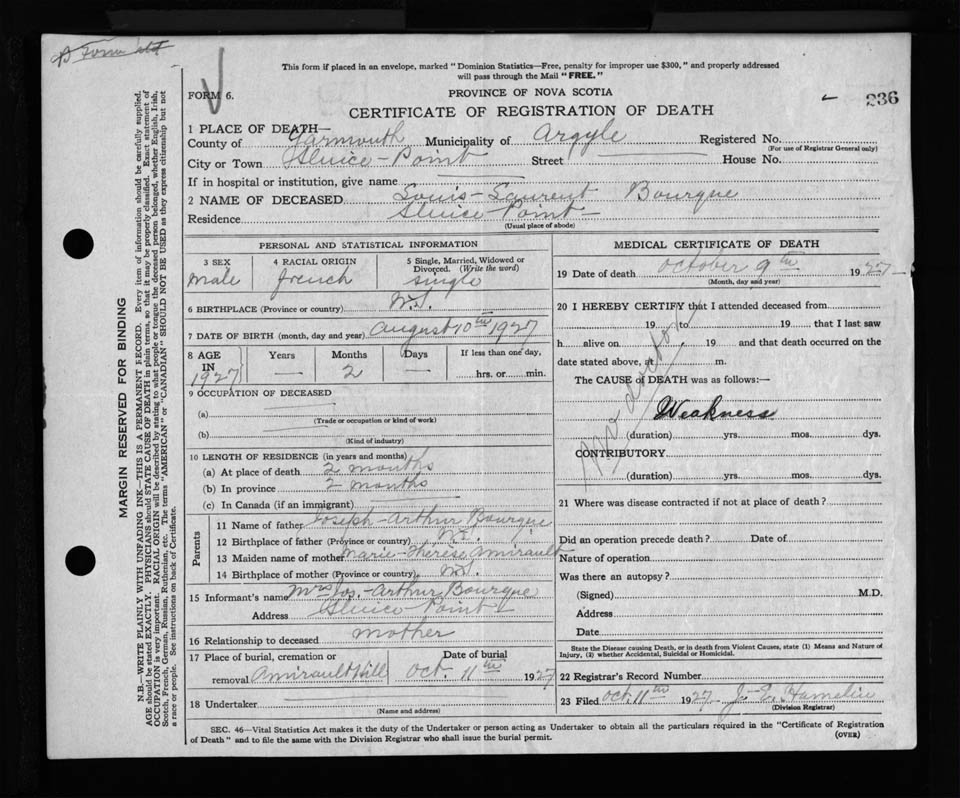 This form if placed in an envelope, marked "Dominion Statistics—Free, penalty for improper use $300," and properly addressed
will pass through the Mail "FREE."
FORM 6.
PROVINCE OF NOVA SCOTIA
236
CERTIFICATE OF REGISTRATION OF DEATH
1 PLACE OF DEATH—
County of Yarmouth Municipality of Argyle Registered No.
(For use of Registrar General only)
City or Town Sluice-Point Street House No.
If in hospital or institution, give name
2 NAME OF DECEASED Louis-Laurent Bourque
Residence Sluice-Point
(Usual place of abode)
PERSONAL AND STATISTICAL INFORMATION
3 SEX 4 RACIAL ORIGIN 5 Single, Married, Widowed or Divorced. (Write the word)
male french single
6 BIRTHPLACE (Province or country) N.S.
7 DATE OF BIRTH (month, day and year) August 10th 1927
8 AGE Years Months Days If less than one day,
IN 1927 — 2 — hrs. or min.
9 OCCUPATION OF DECEASED
(a)
(Trade or occupation or kind of work)
(b)
(Kind of industry)
10 LENGTH OF RESIDENCE (in years and months)
(a) At place of death 2 months
(b) In province 2 months
(c) In Canada (if an immigrant)
Parents
11 Name of father Joseph-Arthur Bourque
12 Birthplace of father (Province or country) N.S.
13 Maiden name of mother Marie-Therese Amirault
14 Birthplace of mother (Province or country) N.S.
15 Informant's name Mrs Jos. Arthur Bourque
Address Sluice Point
16 Relationship to deceased mother
17 Place of burial, cremation or Date of burial
removal Amirault Hill Oct. 11th 1927
18 Undertaker
(Name and address)
MEDICAL CERTIFICATE OF DEATH
19 Date of death October 9th 1927
(Month, day and year)
20 I HEREBY CERTIFY that I attended deceased from
19 to 19 that I last saw
h alive on 19 and that death occurred on the
date stated above, at m.
The CAUSE of DEATH was as follows:—
No doctor
Weakness
(duration) yrs. mos. dys.
CONTRIBUTORY
(duration) yrs. mos. dys.
21 Where was disease contracted if not at place of death?
Did an operation precede death? Date of
Nature of operation
Was there an autopsy?
(Signed) M.D.
Address
Date
State the Disease causing Death, or in death from Violent Causes, state (1) Means and Nature of
Injury, (2) whether Accidental, Suicidal or Homicidal.
22 Registrar's Record Number
23 Filed Oct. 11th 1927 J. E. Hamelin
(Division Registrar)
SEC. 46—Vital Statistics Act makes it the duty of the Undertaker or person acting as Undertaker to obtain all the particulars required in the "Certificate of Registration
of Death" and to file the same with the Division Registrar who shall issue the burial permit.
(OVER)
MARGIN RESERVED FOR BINDING
N.B.—WRITE PLAINLY WITH UNFADING INK—THIS IS A PERMANENT RECORD. Every item of information should be carefully supplied.
AGE should be stated EXACTLY. PHYSICIANS should STATE CAUSE OF DEATH in plain terms, so that it may be properly classified. Exact statement of
OCCUPATION is very important. RACIAL ORIGIN will be described by stating to what people or tongue the deceased person belonged, whether English, Irish,
Scotch, French, German, Russian, Ruthenian, etc. The terms "AMERICAN" or "CANADIAN" SHOULD NOT BE USED as they express citizenship but not
a race or people. See instructions on back of Certificate.